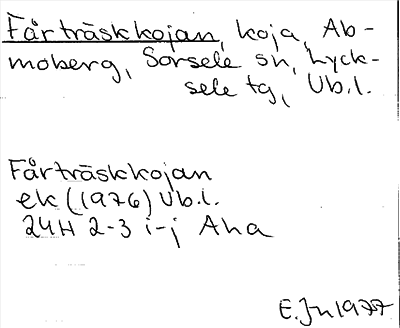 Fårträskkojan, koja, Ab-
moberg, Sorsele sn, Lyck-
sele tg, Vb.l.
Fårträskkojan
ek (1976) Vb.l.
24H 2-3 i-j Aha
E.Jn 1977